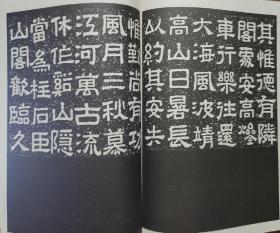 其惟德有隣
閣雲安高
車行樂往還
大海風波靖
高山日長
以約其安失
惟勤尚有功
風月三秋慕
江河萬古流
休作谿山隱
當為柱石臣
山閣歡臨久